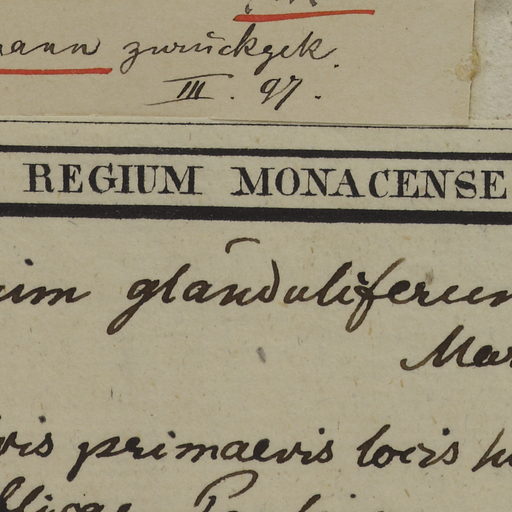 mann zurückgek.
III. 97.
REGIUM MONACENSE
ium glanduliferum
Mar
primaevis locis hu